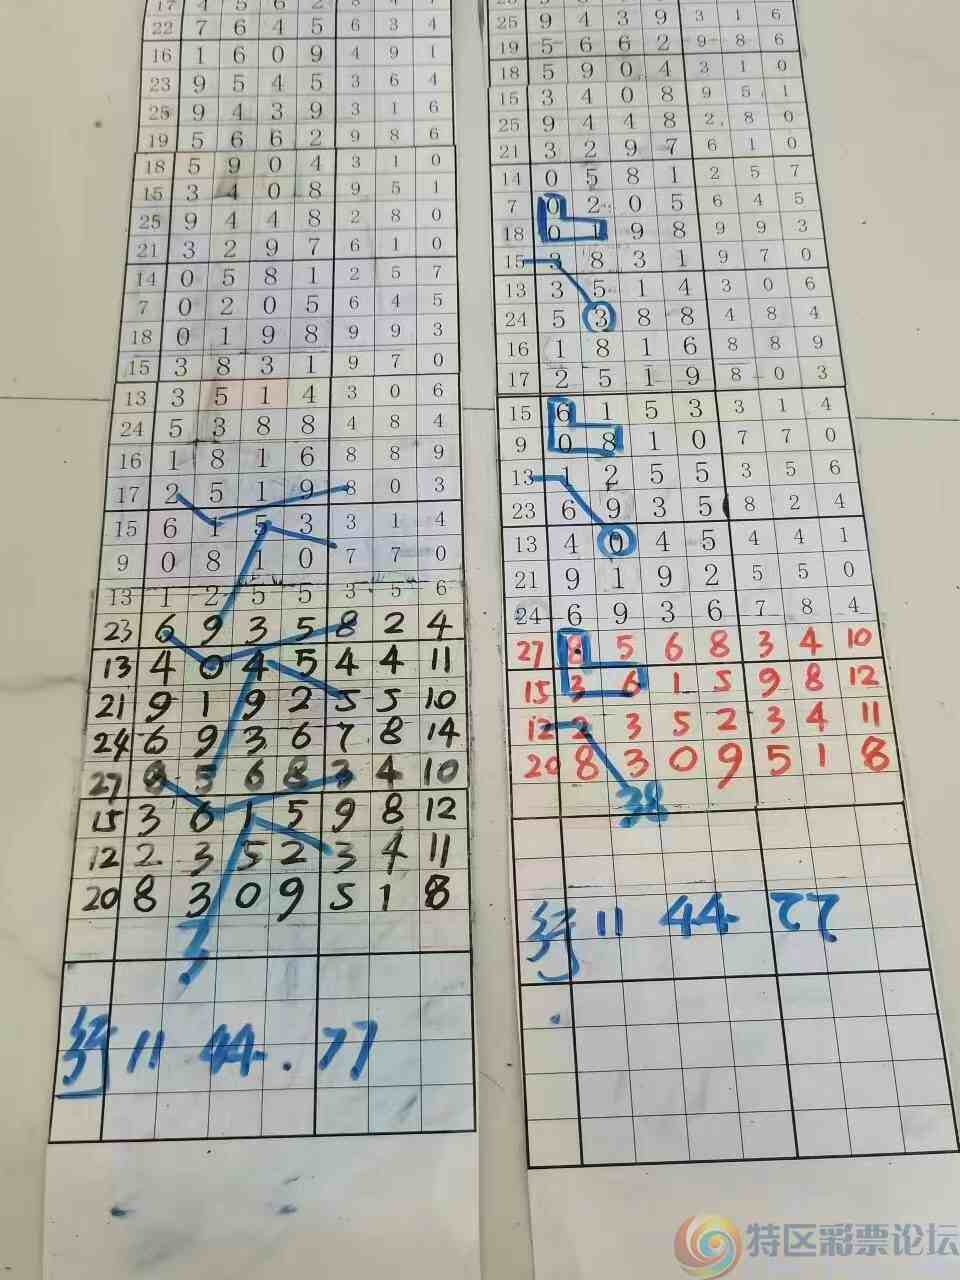 22 7 6 4 5 6 3 4
16 1 6 0 9 4 9 1
23 9 5 4 5 3 6 4
25 9 4 3 9 3 1 6
19 5 6 6 2 9 8 6
18 5 9 0 4 3 1 0
15 3 4 0 8 9 5 1
25 9 4 4 8 2 8 0
21 3 2 9 7 6 1 0
14 0 5 8 1 2 5 7
7 0 2 0 5 6 4 5
18 0 1 9 8 9 9 3
15 3 8 3 1 9 7 0
13 3 5 1 4 3 0 6
24 5 3 8 8 4 8 4
16 1 8 1 6 8 8 9
17 2 5 1 9 8 0 3
15 6 1 5 3 3 1 4
9 0 8 1 0 7 7 0
13 1 2 5 5 3 5 6
23 6 9 3 5 8 2 4
13 4 0 4 5 4 4 11
21 9 1 9 2 5 5 10
24 6 9 3 6 7 8 14
27 8 5 6 8 3 4 10
15 3 6 1 5 9 8 12
12 2 3 5 2 3 4 11
20 8 3 0 9 5 1 8
3
11 44. 77
25 9 4 3 9 3 1 6
19 5 6 6 2 9 8 6
18 5 9 0 4 3 1 0
15 3 4 0 8 9 5 1
25 9 4 4 8 2 8 0
21 3 2 9 7 6 1 0
14 0 5 8 1 2 5 7
7 0 2 0 5 6 4 5
18 0 1 9 8 9 9 3
15 3 8 3 1 9 7 0
13 3 5 1 4 3 0 6
24 5 3 8 8 4 8 4
16 1 8 1 6 8 8 9
17 2 5 1 9 8 0 3
15 6 1 5 3 3 1 4
9 0 8 1 0 7 7 0
13 1 2 5 5 3 5 6
23 6 9 3 5 8 2 4
13 4 0 4 5 4 4 1
21 9 1 9 2 5 5 0
24 6 9 3 6 7 8 4
27 8 5 6 8 3 4 10
15 3 6 1 5 9 8 12
12 2 3 5 2 3 4 11
20 8 3 0 9 5 1 8
38
11 44. 77
特区彩票论坛